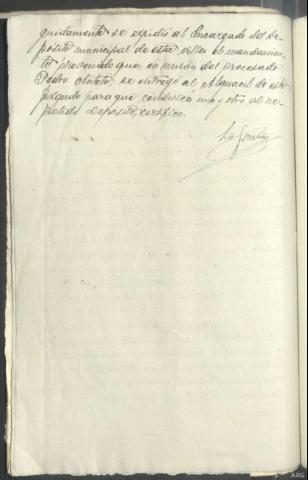 guidamente se expidió al Encargado del De-
pósito municipal de esta villa el mandamien-
to prevenido que en unión del procesado
Pedro se entregó al Alguacil de este
Juzgado para que conduzca uno y otro al re-
petido Depósito, certifico.
ARG